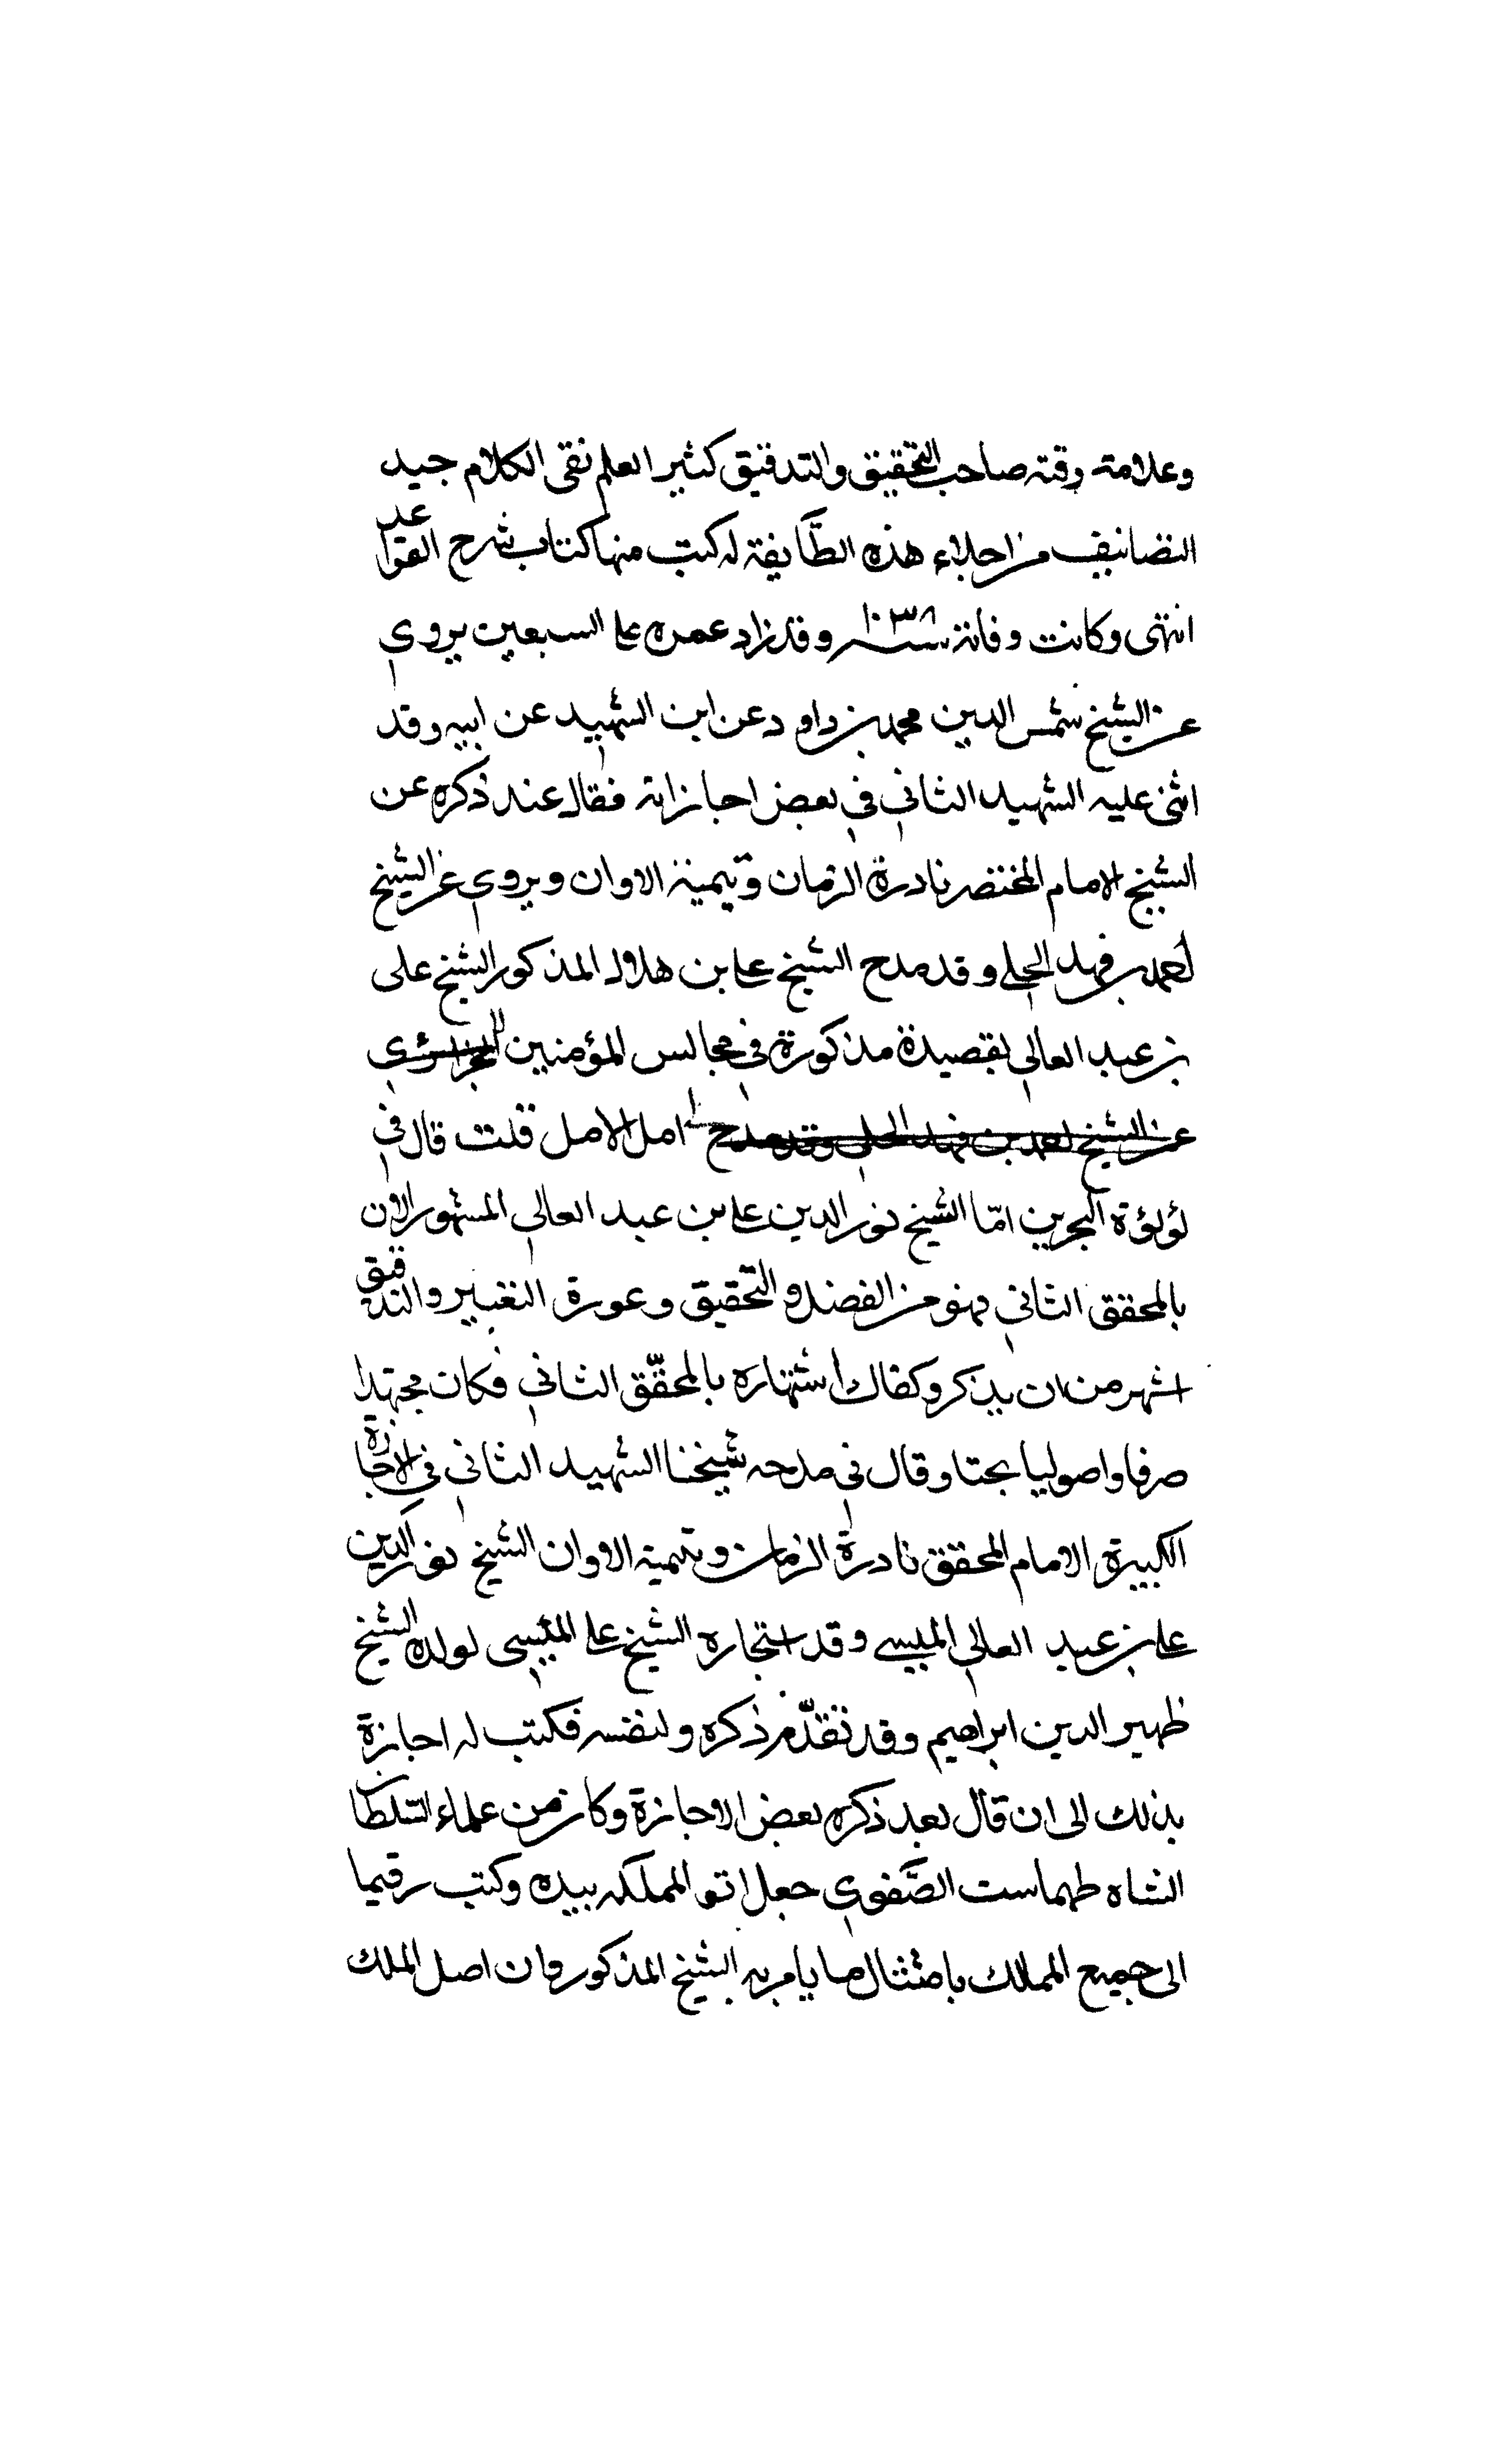 وعلامة وقته صاحب التحقيق والتدقيق كثير العلم نقى الكلام جيد
التصانيف من اجلاء هذه الطَّايفة له كتب منها كتاب شرح القواعد
انتهى وكانت وفاته سنة ١٠٣٨ وقد زاد عمره على السبعين يروى
عن الشيخ شمس الدين محمد بن داود عن ابن الشهيد عن ابيه وقد
اثنى عليه الشهيد الثاني في بعض اجازاته فقال عند ذكره عن
الشيخ الامام المختصر نادرة الزمان ويتيمة الاوان ويروى عن الشيخ
احمد بن فهد الحلي وقد مدح الشيخ على بن هلال المذكور الشيخ على
بن عبد العالي بقصيدة مذكورة في مجالس المؤمنين
عن الشيخ احمد بن فهد الحلي وقد مدح امل الامل قلت قال في
لؤلؤة البحرين امّا الشيخ نور الدين على بن عبد العالي المشهور الان
بالمحقق الثاني فهو من الفضل والتحقيق وعورة التغبير والتدقيق
اشهر من ان يذكر وكفاك اشتهاره بالمحقّق الثاني فكان مجتهدا
صرفا واصوليا بحتا وقال في مدحه شيخنا الشهيد الثاني في الاجازة
الكبيرة الامام المحقق نادرة الزمان ويتيمة الاوان الشيخ نور الدين
على بن عبد العالي الميسي وقد استجاره الشيخ على الميسي لولده الشيخ
ظهير الدين ابراهيم وقد تقدّم ذكره ولنفسه فكتب له اجازة
بذلك الى ان قال بعد ذكره بعض الاجازة وكان من علماء السلطان
الشاه طهماست الصَّفوى جعل اتو المملكه بيده وكتب رقيما
الى جميع الممالك بامتثال ما يأمر به الشيخ المذكور وان اصل الملك